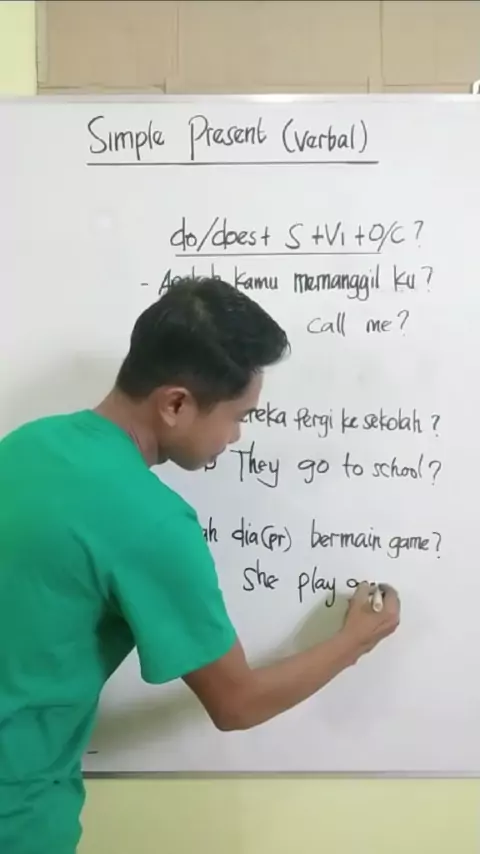 Simple Present (Verbal)
do/does + S + V1 + O/C?
- Apakah kamu memanggil ku?
call me?
fergi ke sekolah?
They go to school?
dia (pr) bermain game?
she play